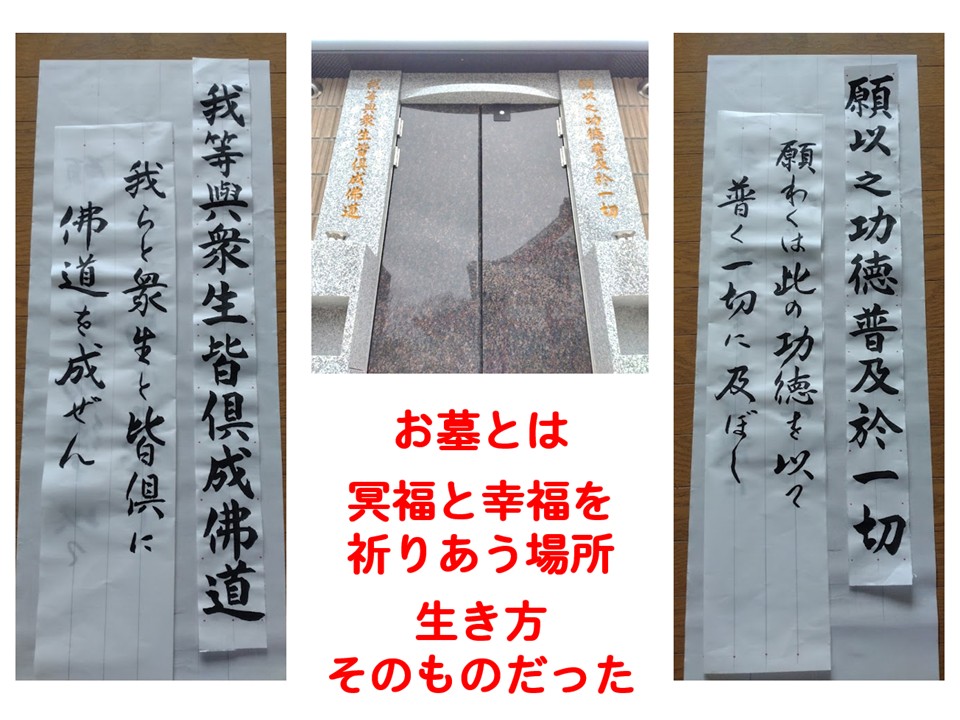 願以之功徳普及於一切
願わくは此の功徳を以て
普く一切に及ぼし
願以之功徳普及於一切
我等與衆生皆倶成佛道
お墓とは
冥福と幸福を
祈りあう場所
生き方
そのものだった
我等與衆生皆倶成佛道
我らと衆生と皆倶に
佛道を成ぜん